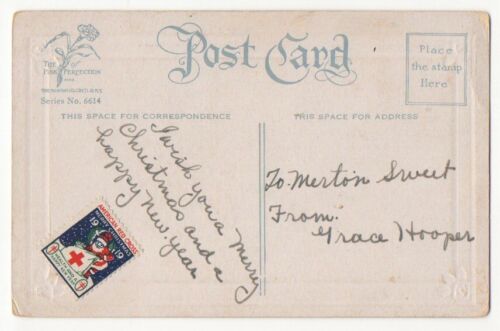 Post Card
THE
PINK OF PERFECTION
Series No. 6614
Place
the stamp
Here
THIS SPACE FOR CORRESPONDENCE
THIS SPACE FOR ADDRESS
I wish you a merry
Christmas and a
happy New. year
To. Merton Sweet
From.
Grace Hooper
AMERICAN RED CROSS
19 19